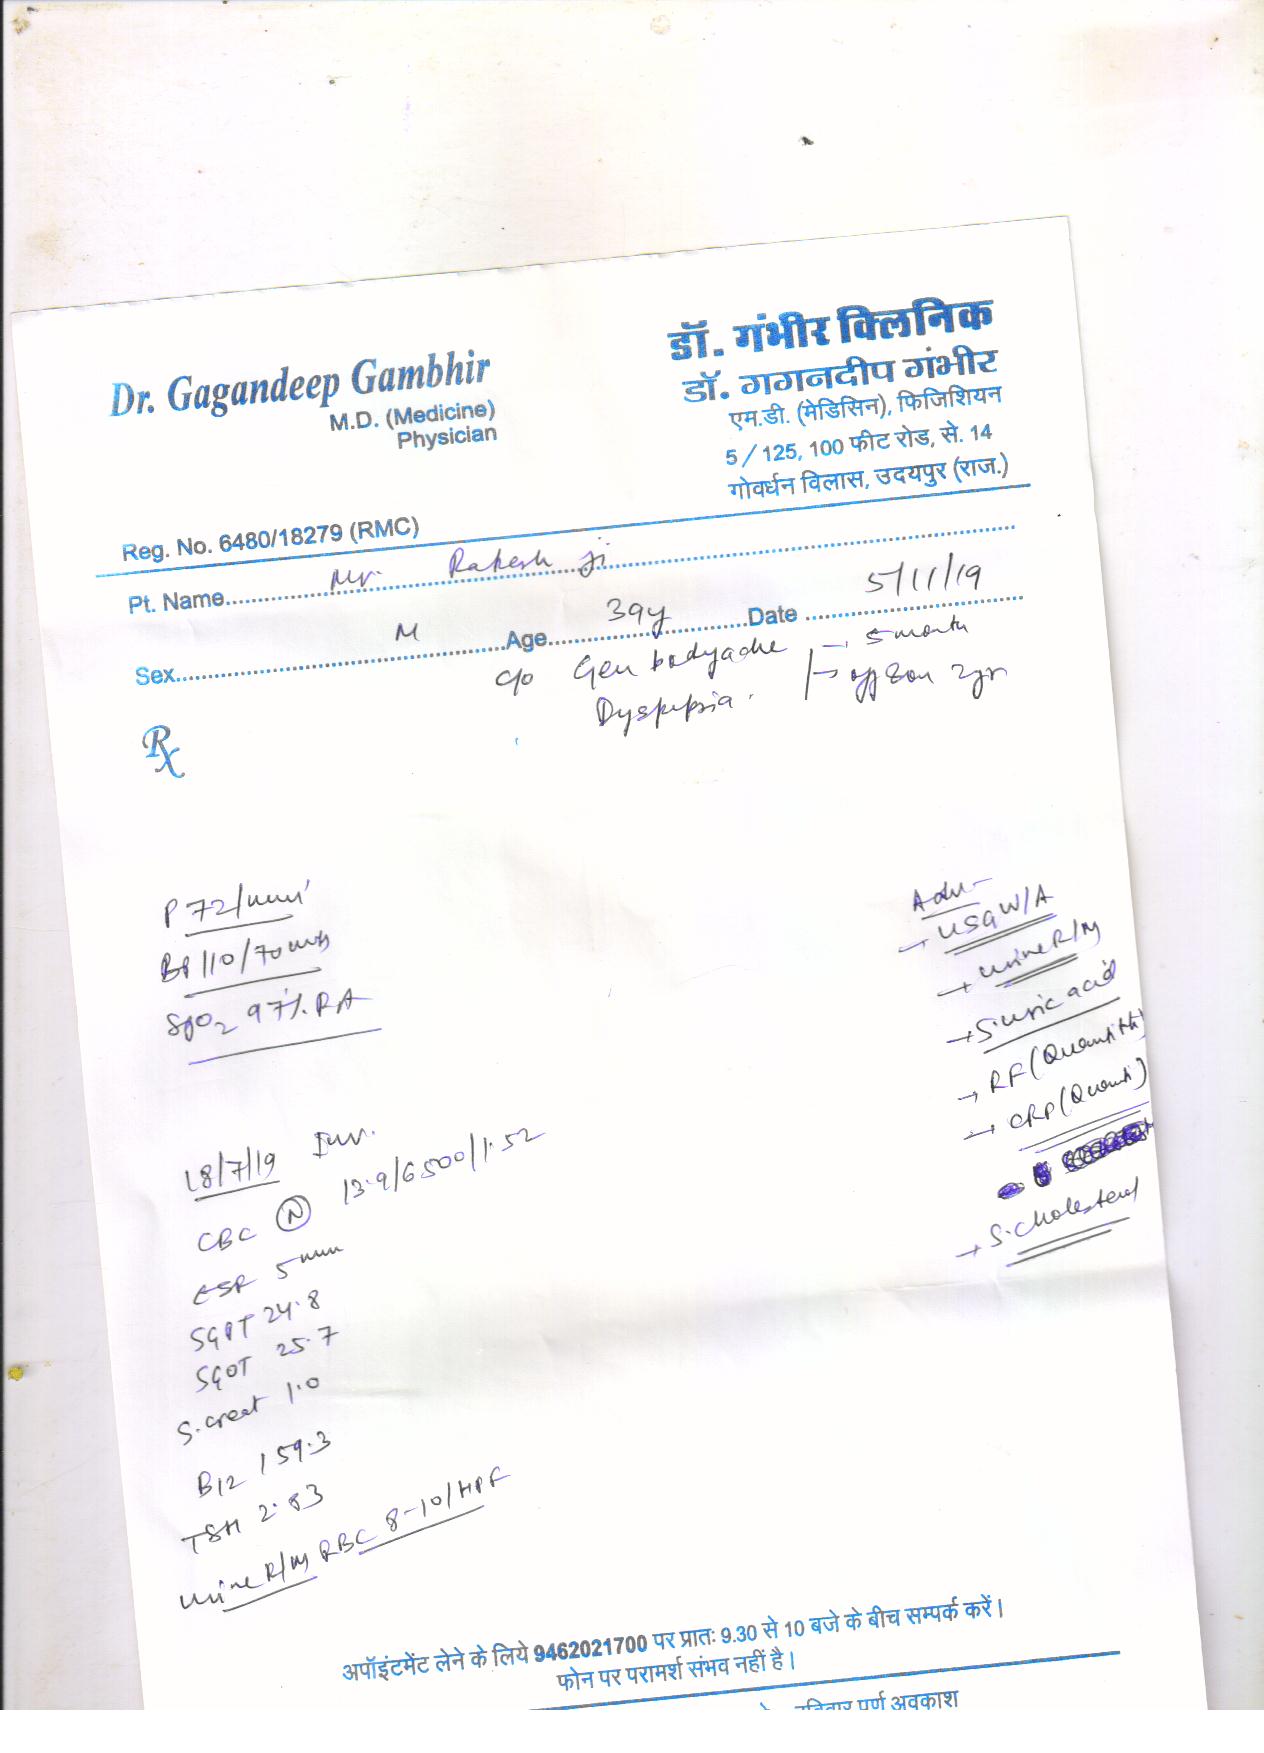 Dr. Gagandeep Gambhir
M.D. (Medicine)
Physician
डॉ. गंभीर क्लिनिक
डॉ. गगनदीप गंभीर
एम.डी. (मेडिसिन), फिजिशियन
5 / 125, 100 फीट रोड, से. 14
गोवर्धन विलास, उदयपुर (राज.)
Reg. No. 6480/18279 (RMC)
Pt. Name Mr. Rakesh Ji
Sex M Age 39y Date 5/11/19
c/o Gen bodyache → 5 month
Dyspepsia. → off & on 2yr
Rx
P 72/min
BP 110/70
SpO2 97% RA
Adv-
→ USG W/A
→ Urine R/M
→ S. uric acid
→ RF (Quantit
→ CRP (Quanti)
→ S. Cholesterol
18/7/19 Inv.
CBC (N) 13.9/6500/1.52
ESR 5 mm
SGPT 24.8
SGOT 25.7
S. creat 1.0
B12 159.3
TSH 2.83
Urine R/M RBC 8-10/HPF
अपॉइंटमेंट लेने के लिये 9462021700 पर प्रातः 9.30 से 10 बजे के बीच सम्पर्क करें।
फोन पर परामर्श संभव नहीं है।
रविवार पूर्ण अवकाश